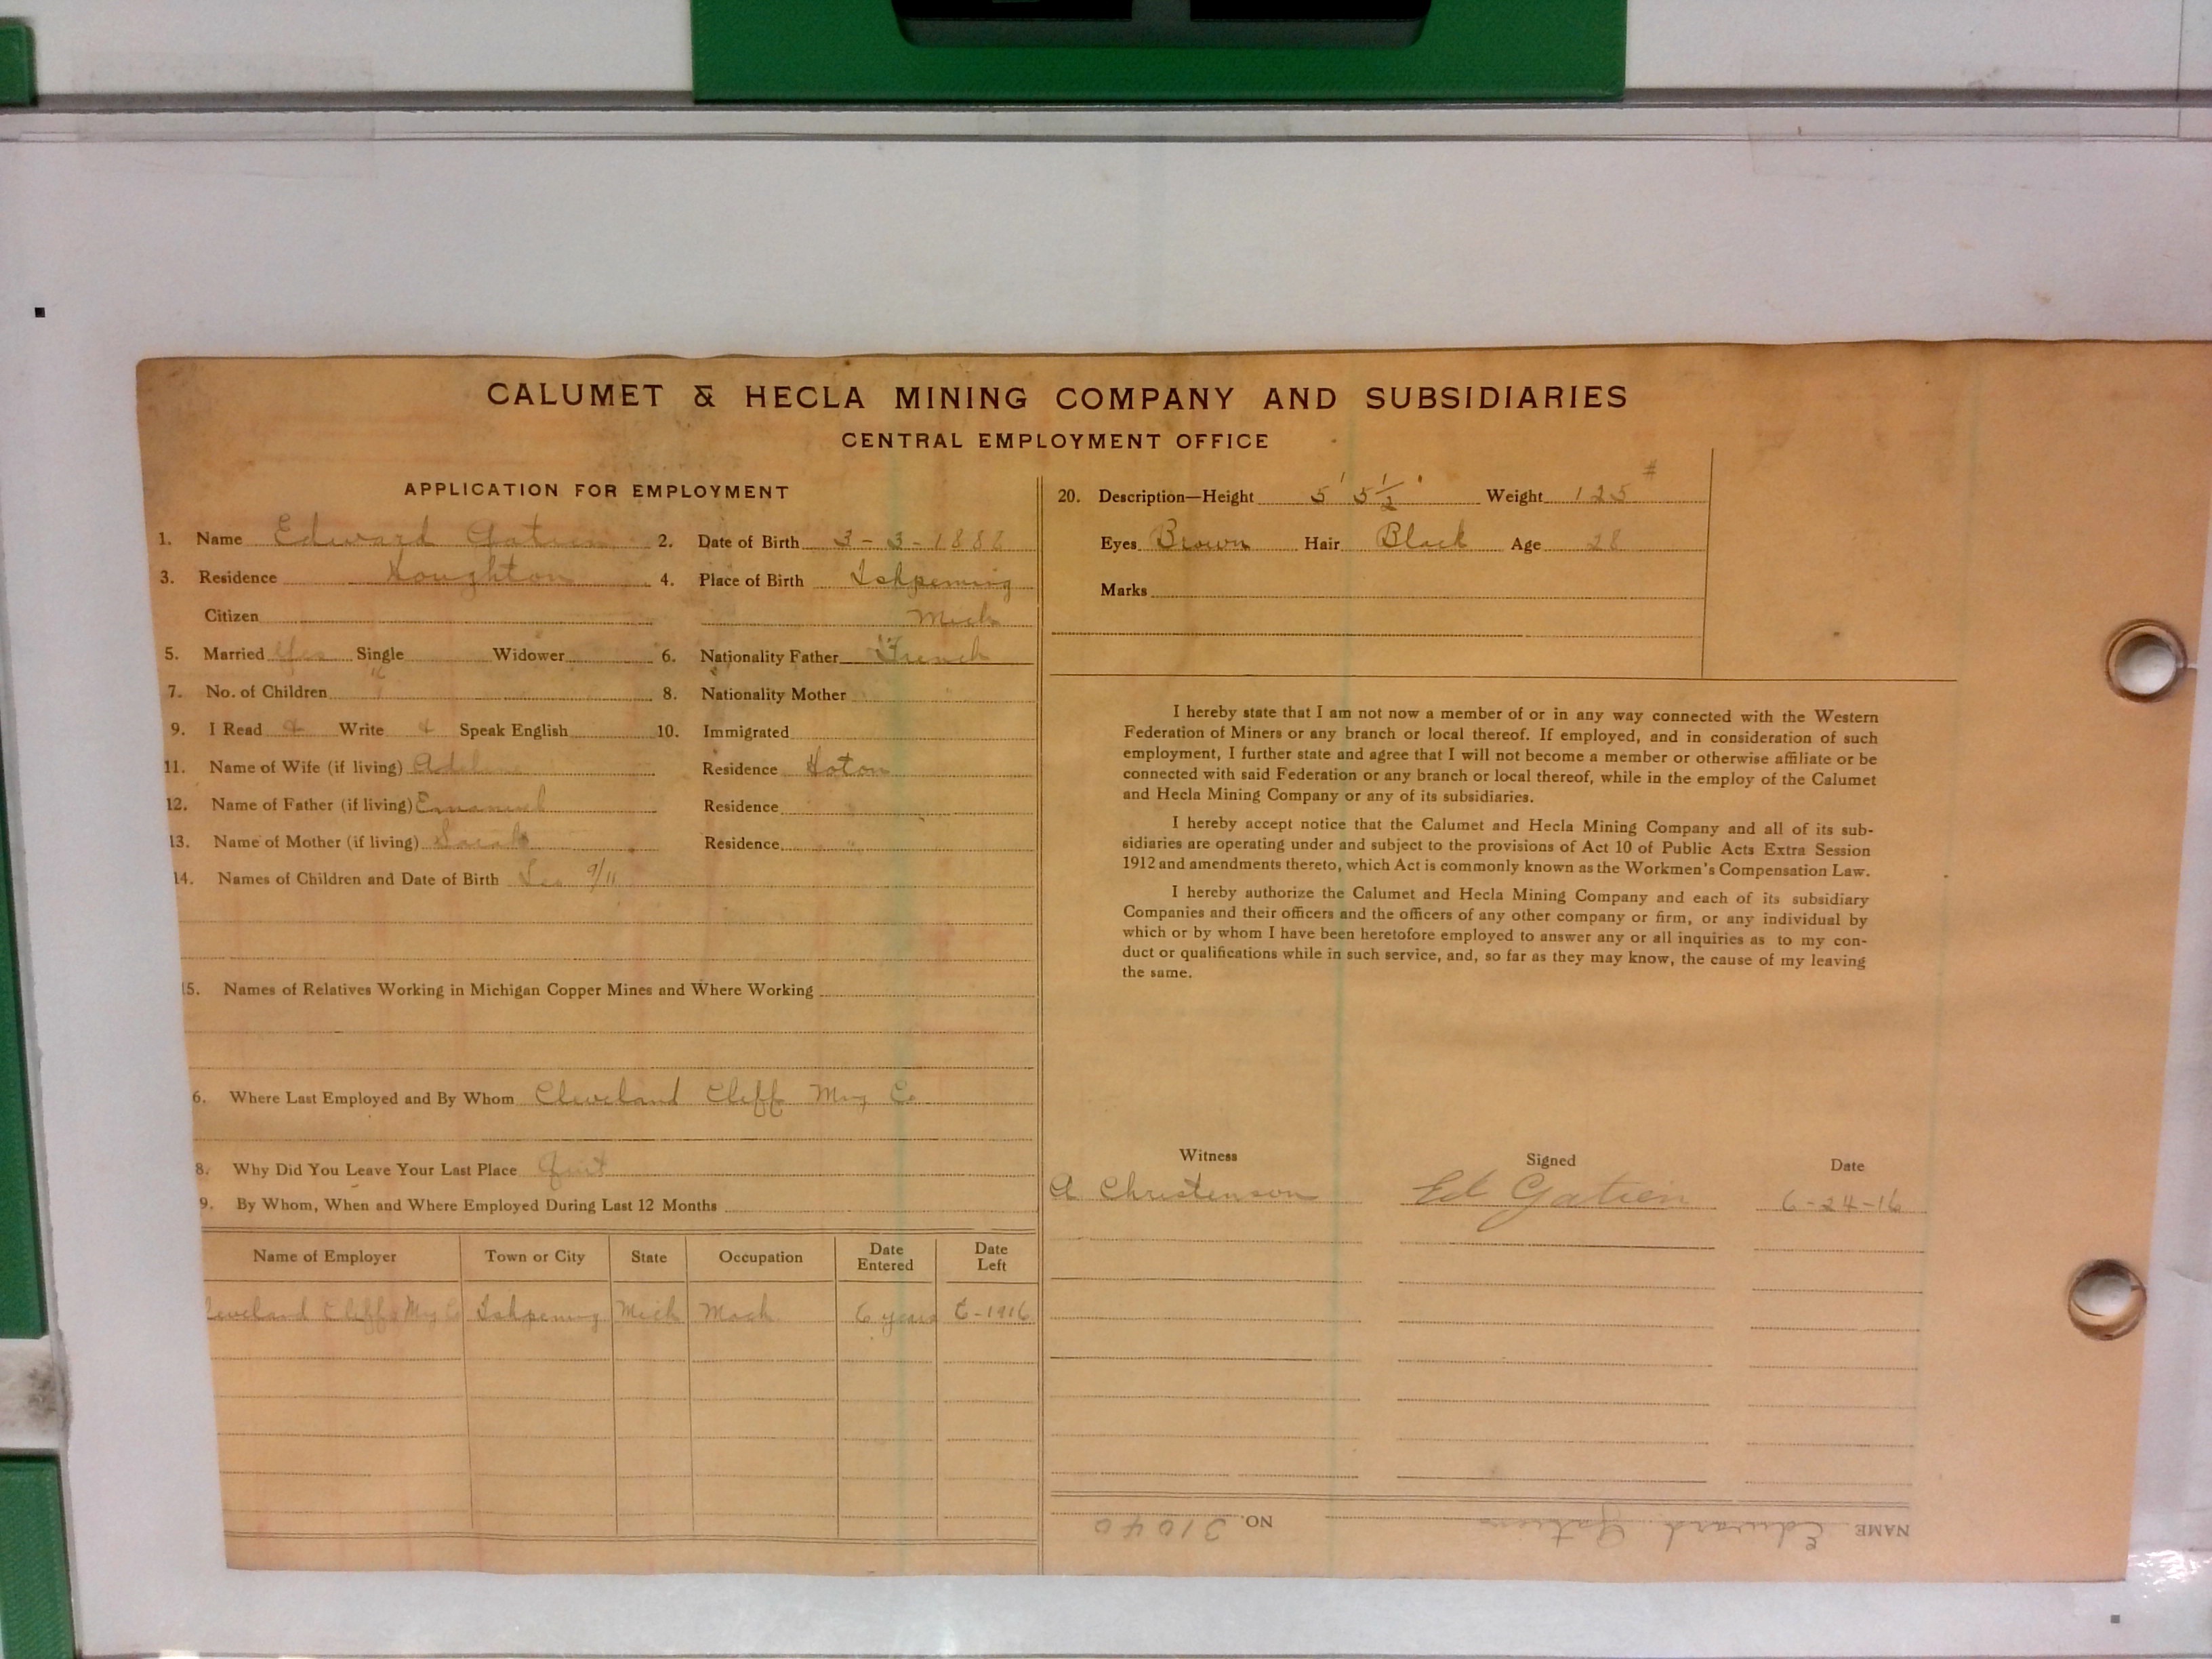 CALUMET & HECLA MINING COMPANY AND SUBSIDIARIES
CENTRAL EMPLOYMENT OFFICE
APPLICATION FOR EMPLOYMENT
1. Name Edward Gatien 2. Date of Birth 3-3-1888
3. Residence Houghton 4. Place of Birth Ishpeming
Citizen Mich
5. Married Yes Single Widower 6. Nationality Father French
7. No. of Children 8. Nationality Mother "
9. I Read & Write & Speak English 10. Immigrated
11. Name of Wife (if living) Residence Hoton
12. Name of Father (if living) Residence "
13. Name of Mother (if living) Sarah Residence "
14. Names of Children and Date of Birth 9/11
15. Names of Relatives Working in Michigan Copper Mines and Where Working
6. Where Last Employed and By Whom Cleveland Cliff Mng Co
8. Why Did You Leave Your Last Place Quit
9. By Whom, When and Where Employed During Last 12 Months
Name of Employer Town or City State Occupation Date Entered Date Left
leveland Cliffs Mng Co Ishpeming Mich Mach 6 years 6-1916
20. Description—Height 5' 5 1/2" Weight 125 #
Eyes Brown Hair Black Age 28
Marks
I hereby state that I am not now a member of or in any way connected with the Western
Federation of Miners or any branch or local thereof. If employed, and in consideration of such
employment, I further state and agree that I will not become a member or otherwise affiliate or be
connected with said Federation or any branch or local thereof, while in the employ of the Calumet
and Hecla Mining Company or any of its subsidiaries.
I hereby accept notice that the Calumet and Hecla Mining Company and all of its sub-
sidiaries are operating under and subject to the provisions of Act 10 of Public Acts Extra Session
1912 and amendments thereto, which Act is commonly known as the Workmen's Compensation Law.
I hereby authorize the Calumet and Hecla Mining Company and each of its subsidiary
Companies and their officers and the officers of any other company or firm, or any individual by
which or by whom I have been heretofore employed to answer any or all inquiries as to my con-
duct or qualifications while in such service, and, so far as they may know, the cause of my leaving
the same.
Witness Signed Date
A Christenson Ed Gatien 6-24-16
NAME Edward Gatien NO. 31040